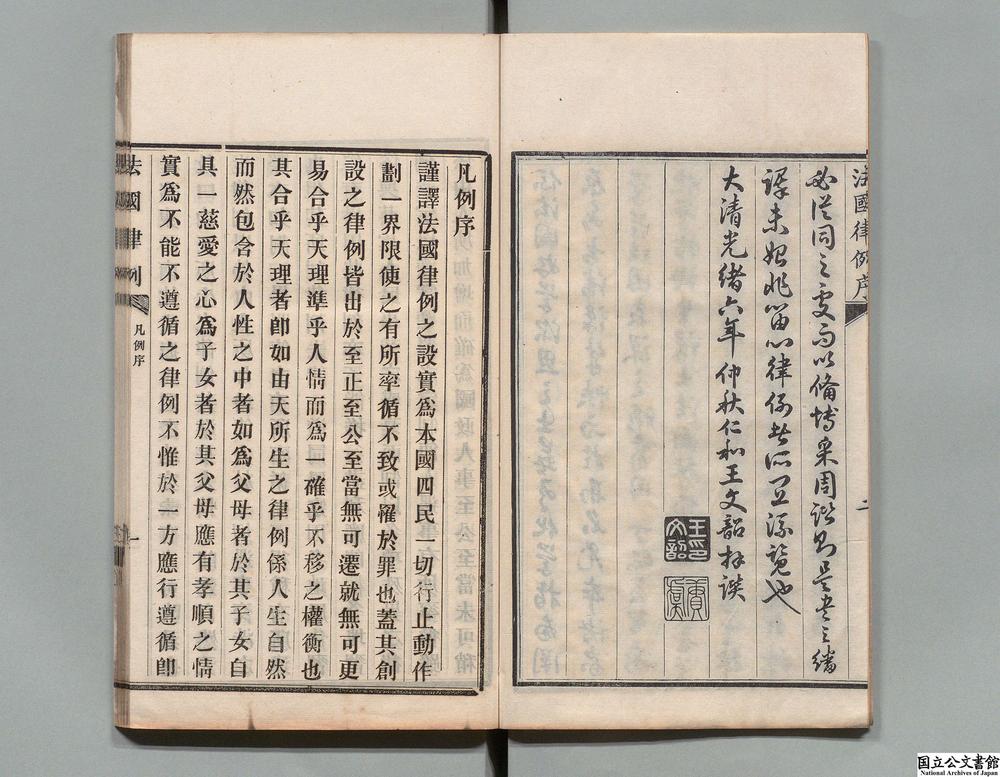 法國律例序
必從同之處而以備博采周諮則是書之繙
譯未始非留心律例者所宜流覽也
大清光緒六年仲秋仁和王文韶拜譔
二
王文韶印
夔石
凡例序
謹譯法國律例之設實爲本國四民一切行止動作
劃一界限使之有所率循不致或罹於罪也蓋其創
設之律例皆出於至正至公至當無可遷就無可更
易合乎天理準乎人情而爲一確乎不移之權衡也
其合乎天理者卽如由天所生之律例係人生自然
而然包含於人性之中者如爲父母者於其子女自
具一慈愛之心爲子女者於其父母應有孝順之情
實爲不能不遵循之律例不惟於一方應行遵循卽
法國律例
凡例序
一
国立公文書館
National Archives of Japan